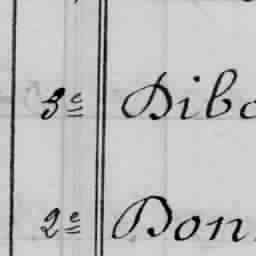 3e Dibo
2e Don